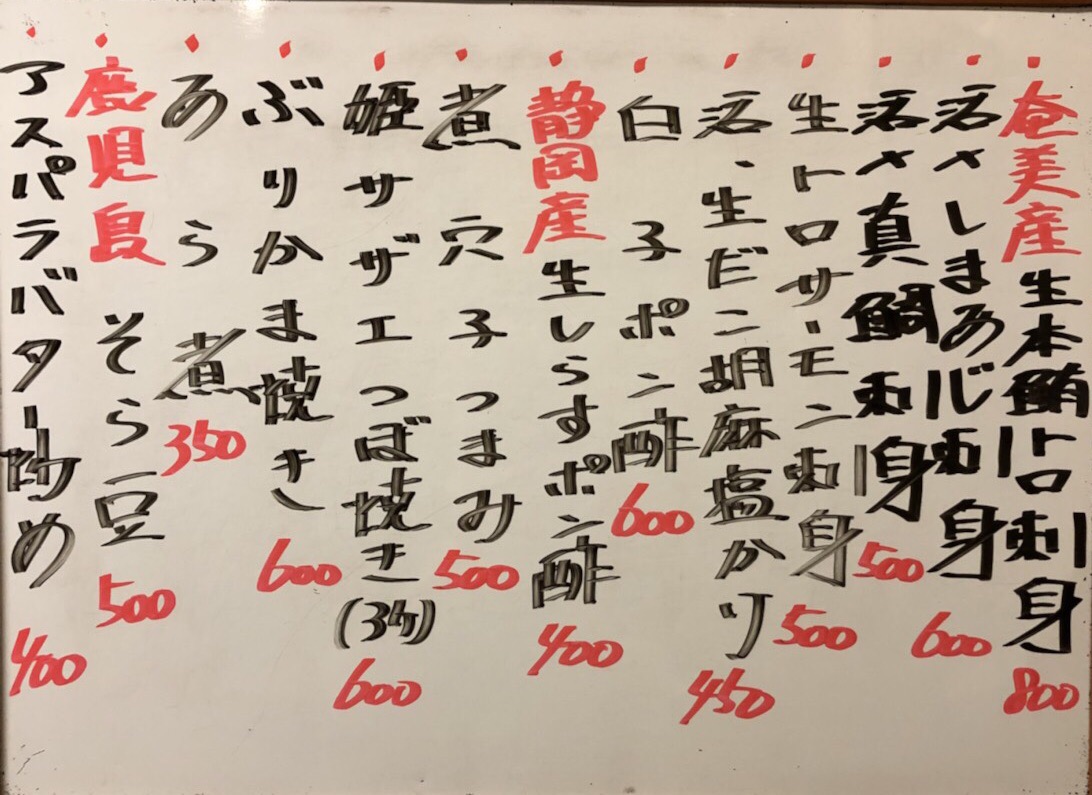 奄美産生本鮪トロ刺身 800
活〆しまあじ刺身 600
活〆真鯛刺身 500
生トロサーモン刺身 500
活、生だこ胡麻塩かけ 450
白子ポン酢 600
静岡産生しらすポン酢 400
煮穴子つまみ 500
姫サザエつぼ焼き(3ケ) 600
ぶりかま焼き 600
あら煮 350
鹿児島そら豆 500
アスパラバター炒め 400